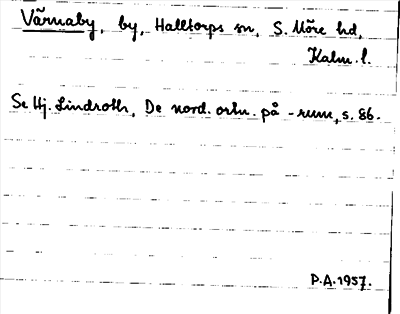 Värnaby, by, Halltorps sn, S. Möre hd,
Kalm. l.
Se Hj. Lindroth, De nord. ortn. på -rum, s. 86.
P.A. 1957.